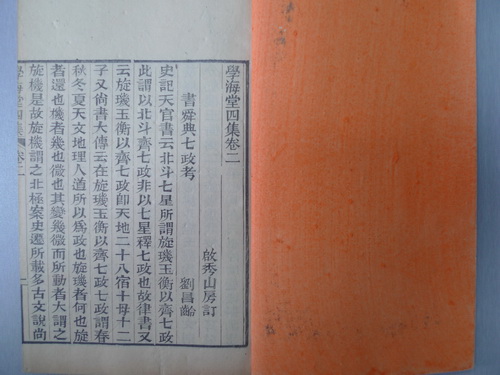 學海堂四集卷二
啟秀山房訂
書舜典七政考
劉昌齡
史記天官書云北斗七星所謂旋璣玉衡以齊七政
此謂以北斗齊七政非以七星釋七政也故律書又
云旋璣玉衡以齊七政卽天地二十八宿十母十二
子又尚書大傳云在旋璣玉衡以齊七政七政謂春
秋冬夏天文地理人道所以爲政也旋璣者何也旋
者還也機者幾也微也其變幾微而所動者大謂之
旋機是故旋機謂之北極案史遷所載多古文說尚
學海堂四集 卷二 一